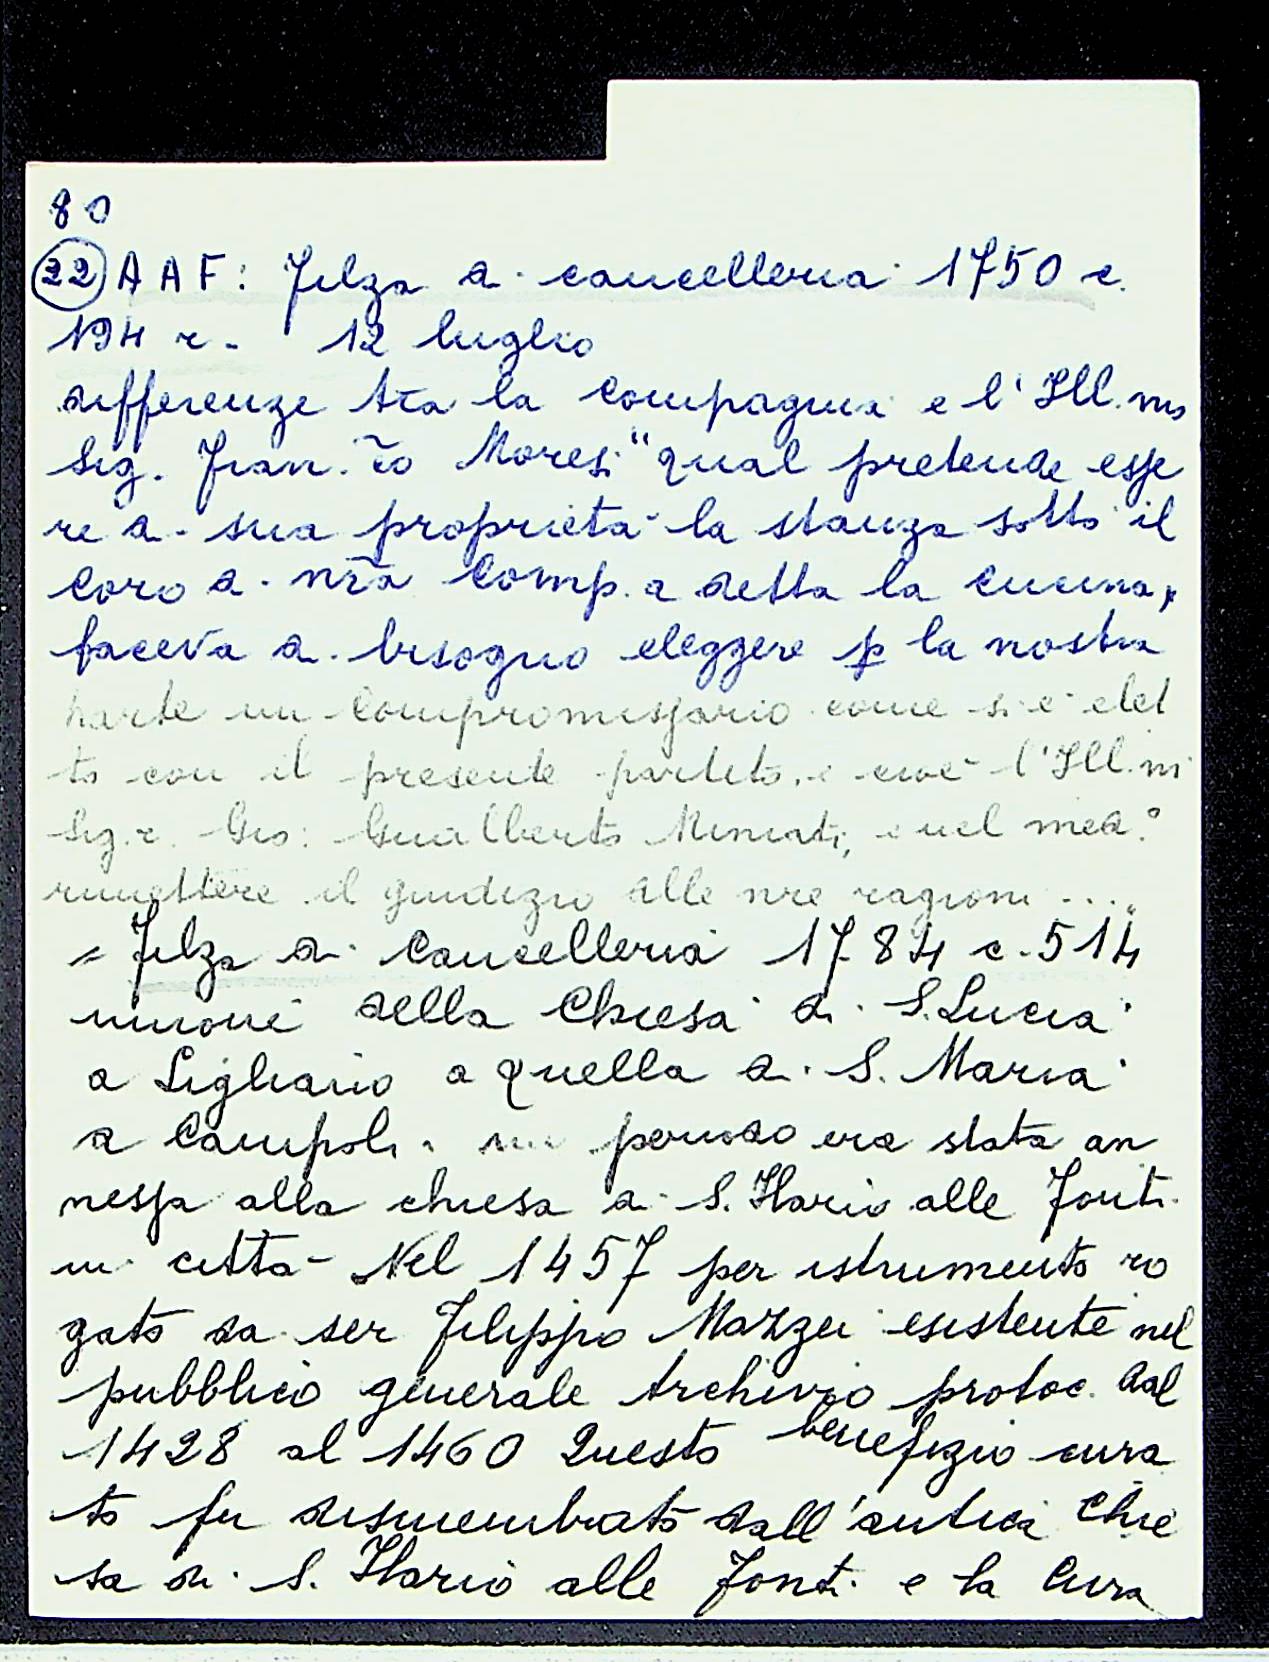 80
22 AAF: Filza di cancelleria 1750 c.
194 r. 12 luglio
differenze tra la compagnia e l'Ill.mo
Sig. Fran.co Moresi "qual pretende esse
re di sua proprietà la stanza sotto il
coro di nr̃a Comp.a detta la cucina,
faceva di bisogno eleggere p la nostra
parte un compromissario come si è elet
to con il presente partito, e cioè l'Ill.m
Sig.r. Gio: Gualberto Miniati, e nel med.°
rimettere il giudizio alle nre ragioni ....
= Filza di Cancelleria 1784 c. 514
unione della Chiesa di S. Lucia
a Sigliano a quella di S. Maria
a Campoli. periodo era stata an
nessa alla chiesa di S. Ilario alle Fonti
in città Nel 1457 per istrumento ro
gato da ser Filippo Mazzei esistente nel
pubblico generale Archivio protoc. dal
1428 al 1460 Questo benefizio cura
to fu dismembrato dall'antica Chie
sa di S. Ilario alle Fonti e la Cura